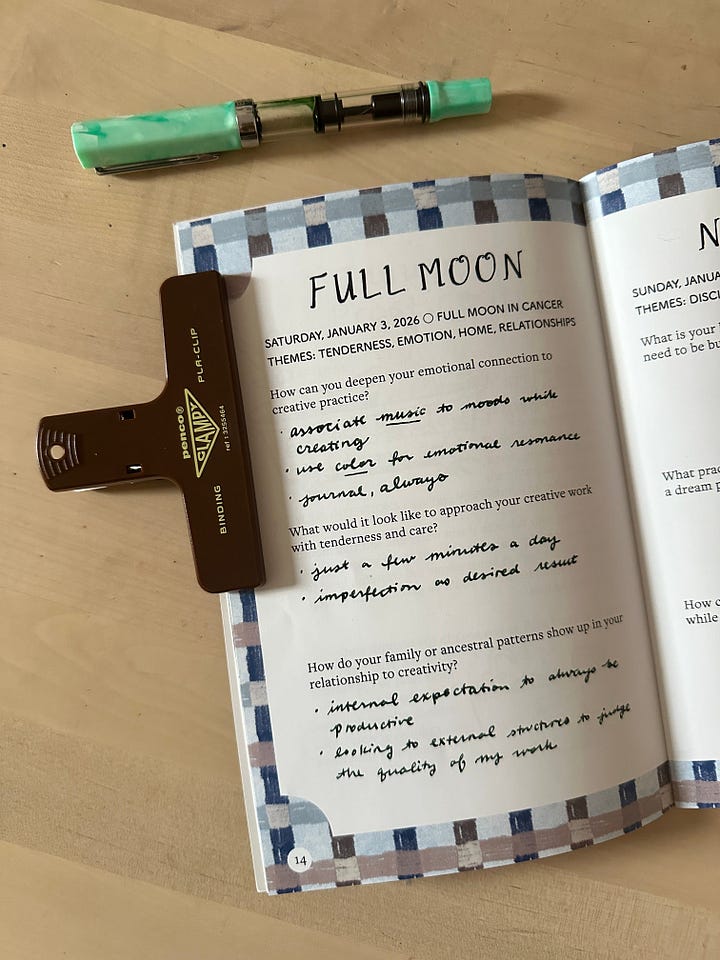 FULL MOON
SATURDAY, JANUARY 3, 2026 ○ FULL MOON IN CANCER
THEMES: TENDERNESS, EMOTION, HOME, RELATIONSHIPS
How can you deepen your emotional connection to
creative practice?
· associate music to moods while
creating
· use color for emotional resonance
· journal, always
What would it look like to approach your creative work
with tenderness and care?
· just a few minutes a day
· imperfection as desired result
How do your family or ancestral patterns show up in your
relationship to creativity?
· internal expectation to always be
productive
· looking to external structures to judge
the quality of my work
14
penco®
CLAMPY
PLA-CLIP
BINDING
ref : 3255464
N
SUNDAY, JANUA
THEMES: DISCI
What is your
need to be bu
What prac
a dream p
How c
while